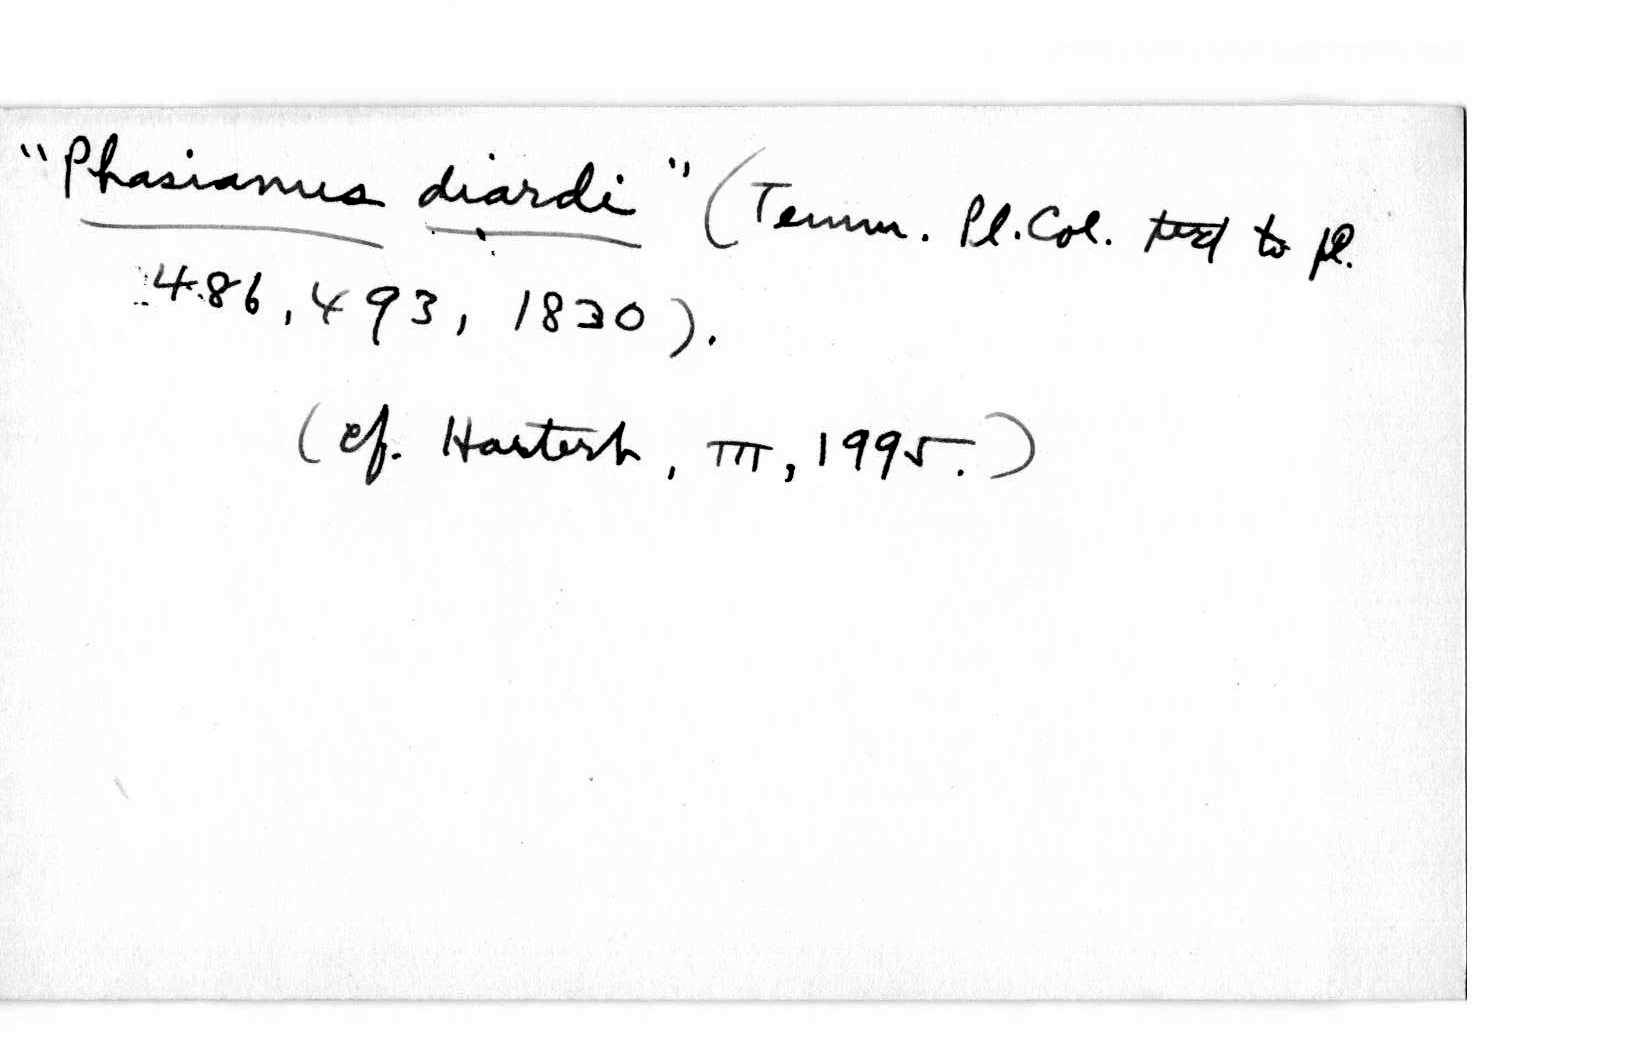 "Phasianus diardi" (Temm. Pl. Col. text to pl.
486, 493, 1830).
(cf. Hartert, III, 1995.)